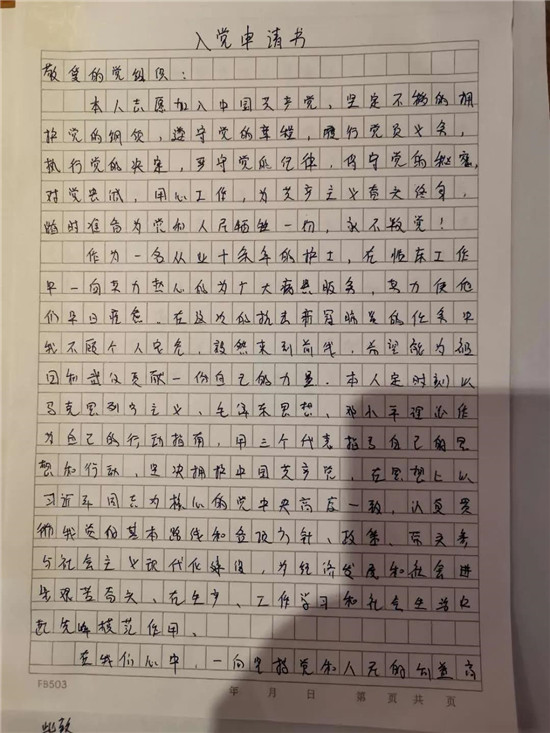 入党申请书
敬爱的党组织：
本人志愿加入中国共产党，坚定不移的拥
护党的纲领，遵守党的章程，履行党员义务，
执行党的决定，严守党的纪律，保守党的秘密，
对党忠诚，用心工作，为共产主义奋斗终身，
随时准备为党和人民牺牲一切，永不叛党！
作为一名从业十余年的护士，在临床工作
中一向努力热心的为广大病患服务，努力使他
们早日痊愈。在这次的抗击新冠肺炎的任务中
我不顾个人安危，毅然来到前线，希望能为祖
国和武汉贡献一份自己的力量。本人定时刻以
马克思列宁主义、毛泽东思想、邓小平理论作
为自己的行动指南，用三个代表指导自己的思
想和行动，坚决拥护中国共产党，在思想上以
习近平同志为核心的党中央高度一致，认真贯
彻我党的基本路线和各项方针、政策、带头参
与社会主义现代化建设，为经济发展和社会进
步艰苦奋斗、在生产、工作学习和社会生活中
起先锋模范作用、
在我们心中，一向坚持党和人民的利益高
FB503 年 月 日 第 页 共 页
此致